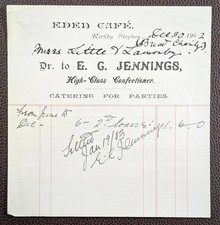 EDEN CAFÉ,
Kirkby Stephen, Dec 30 1902
(Bread Charity)
Messrs Little & Lamonby
Dr. to E. G. JENNINGS,
High-Class Confectioner.
CATERING FOR PARTIES.
from June to
Dec - 6 - 2d loaves 6 - 0
Settled
Jan 19/03
E G Jennings